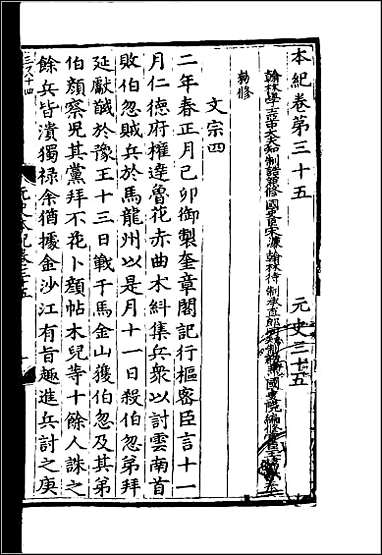 本紀卷第三十五　元史三十五
翰林學士亞中大夫知制誥兼修國史臣宋濂翰林待制承直郎同知制誥兼國史院編修官臣王禕奉
勑修
文宗四
二年春正月己卯御製奎章閣記行樞密臣言十一
月仁德府權達魯花赤曲木糾集兵衆以討雲南首
敗伯忽賊兵於馬龍州以是月十一日殺伯忽弟拜
延獻馘於豫王十三日戰于馬金山獲伯忽及其弟
伯顏察兒其黨拜不花卜顏帖木兒等十餘人誅之
餘兵皆潰獨祿余猶據金沙江有旨趣進兵討之庚